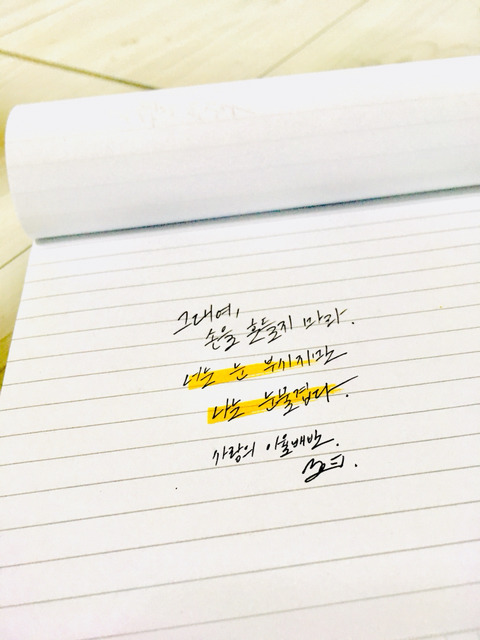 그대여,
손을 흔들지 마라.
너는 눈 부시지만
나는 눈물겹다.
사랑의 이율배반.